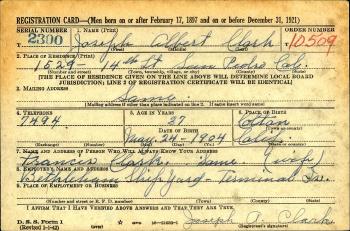 REGISTRATION CARD—(Men born on or after February 17, 1897 and on or before December 31, 1921)
SERIAL NUMBER
1. NAME (Print)
ORDER NUMBER
T 2300
Joseph Albert Clark
T 10509
2. PLACE OF RESIDENCE (Print)
1529 - 14th St San Pedro Cal.
(Number and street) (Town, township, village, or city) (County) (State)
[THE PLACE OF RESIDENCE GIVEN ON THE LINE ABOVE WILL DETERMINE LOCAL BOARD
JURISDICTION; LINE 2 OF REGISTRATION CERTIFICATE WILL BE IDENTICAL]
3. MAILING ADDRESS
Same
[Mailing address if other than place indicated on line 2. If same insert word same]
4. TELEPHONE
5. AGE IN YEARS
6. PLACE OF BIRTH
7494
37
DATE OF BIRTH
(Town or county)
May 24 - 1904
Calif.
(Mo.) (Day) (Yr.)
(State or country)
7. NAME AND ADDRESS OF PERSON WHO WILL ALWAYS KNOW YOUR ADDRESS
Francis Clark. Same (wife)
8. EMPLOYER'S NAME AND ADDRESS
Bethlehem Ship Yard - Terminal Is.
9. PLACE OF EMPLOYMENT OR BUSINESS
(Number and street or R. F. D. number) (Town) (County) (State)
I AFFIRM THAT I HAVE VERIFIED ABOVE ANSWERS AND THAT THEY ARE TRUE.
D. S. S. Form 1
(Revised 1-1-42) (over)
Joseph A. Clark
(Registrant's signature)